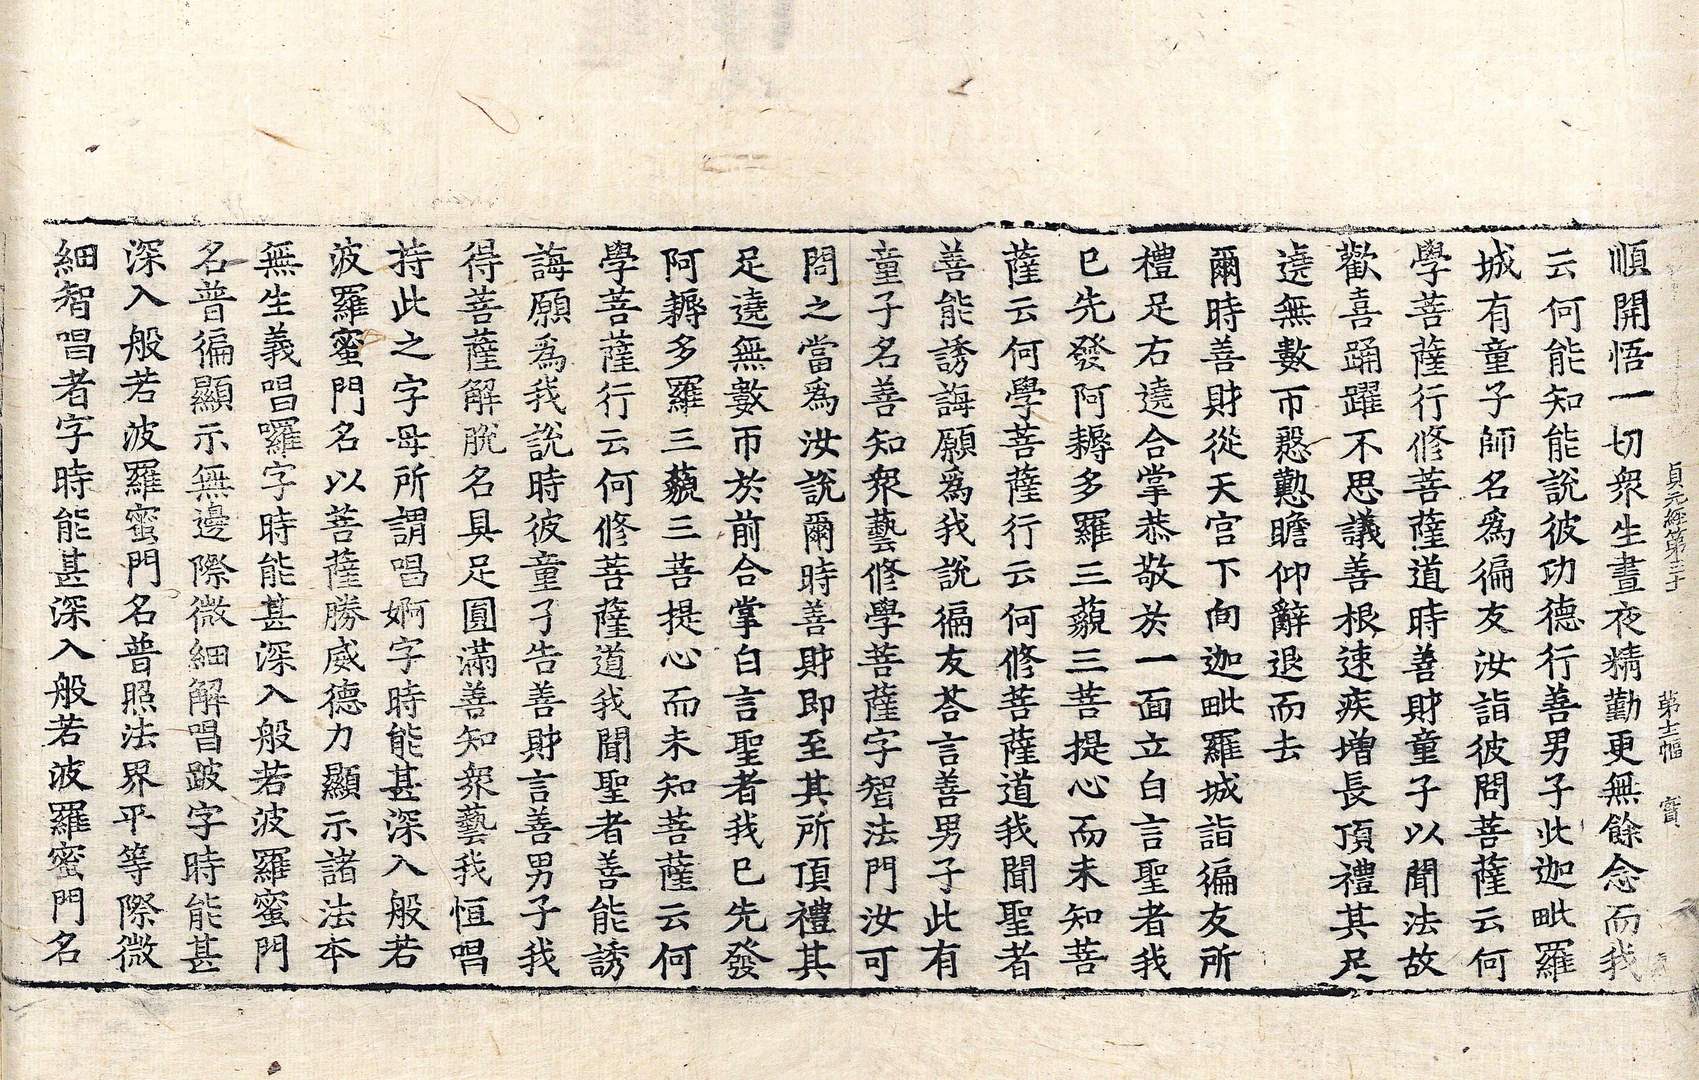 貞元經第三十
第十二幅
寶
順開悟一切衆生晝夜精勤更無餘念而我
云何能知能說彼功德行善男子此迦毗羅
城有童子師名爲徧友汝詣彼問菩薩云何
學菩薩行修菩薩道時善財童子以聞法故
歡喜踊躍不思議善根速疾增長頂禮其足
遶無數帀慇懃瞻仰辭退而去
爾時善財從天宫下向迦毗羅城詣徧友所
禮足右遶合掌恭敬於一面立白言聖者我
已先發阿耨多羅三藐三菩提心而未知菩
薩云何學菩薩行云何修菩薩道我聞聖者
善能誘誨願爲我說徧友荅言善男子此有
童子名善知衆藝修學菩薩字智法門汝可
問之當爲汝說爾時善財即至其所頂禮其
足遶無數帀於前合掌白言聖者我已先發
阿耨多羅三藐三菩提心而未知菩薩云何
學菩薩行云何修菩薩道我聞聖者善能誘
誨願爲我說時彼童子告善財言善男子我
得菩薩解脫名具足圓滿善知衆藝我恒唱
持此之字母所謂唱婀字時能甚深入般若
波羅蜜門名以菩薩勝威德力顯示諸法本
無生義唱囉字時能甚深入般若波羅蜜門
名普徧顯示無邊際微細解唱跛字時能甚
深入般若波羅蜜門名普照法界平等際微
細智唱者字時能甚深入般若波羅蜜門名